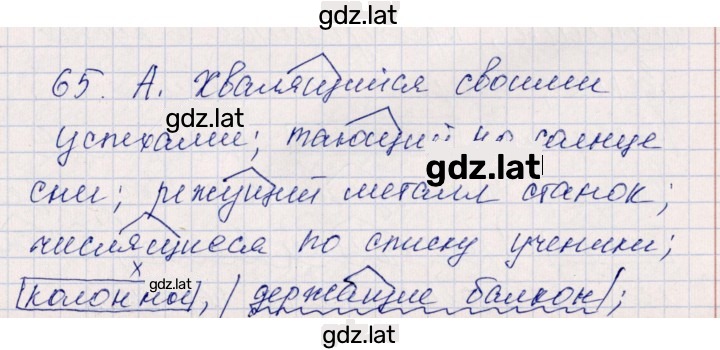 gdz.lat
65. А. Хвалящийся своими
gdz.lat
успехами; тающий на солнце
gdz.lat
снег; режущий металл станок;
числящиеся по списку ученики;
х
[колонной], | держащие балкон |;
gdz.lat
gdz.lat